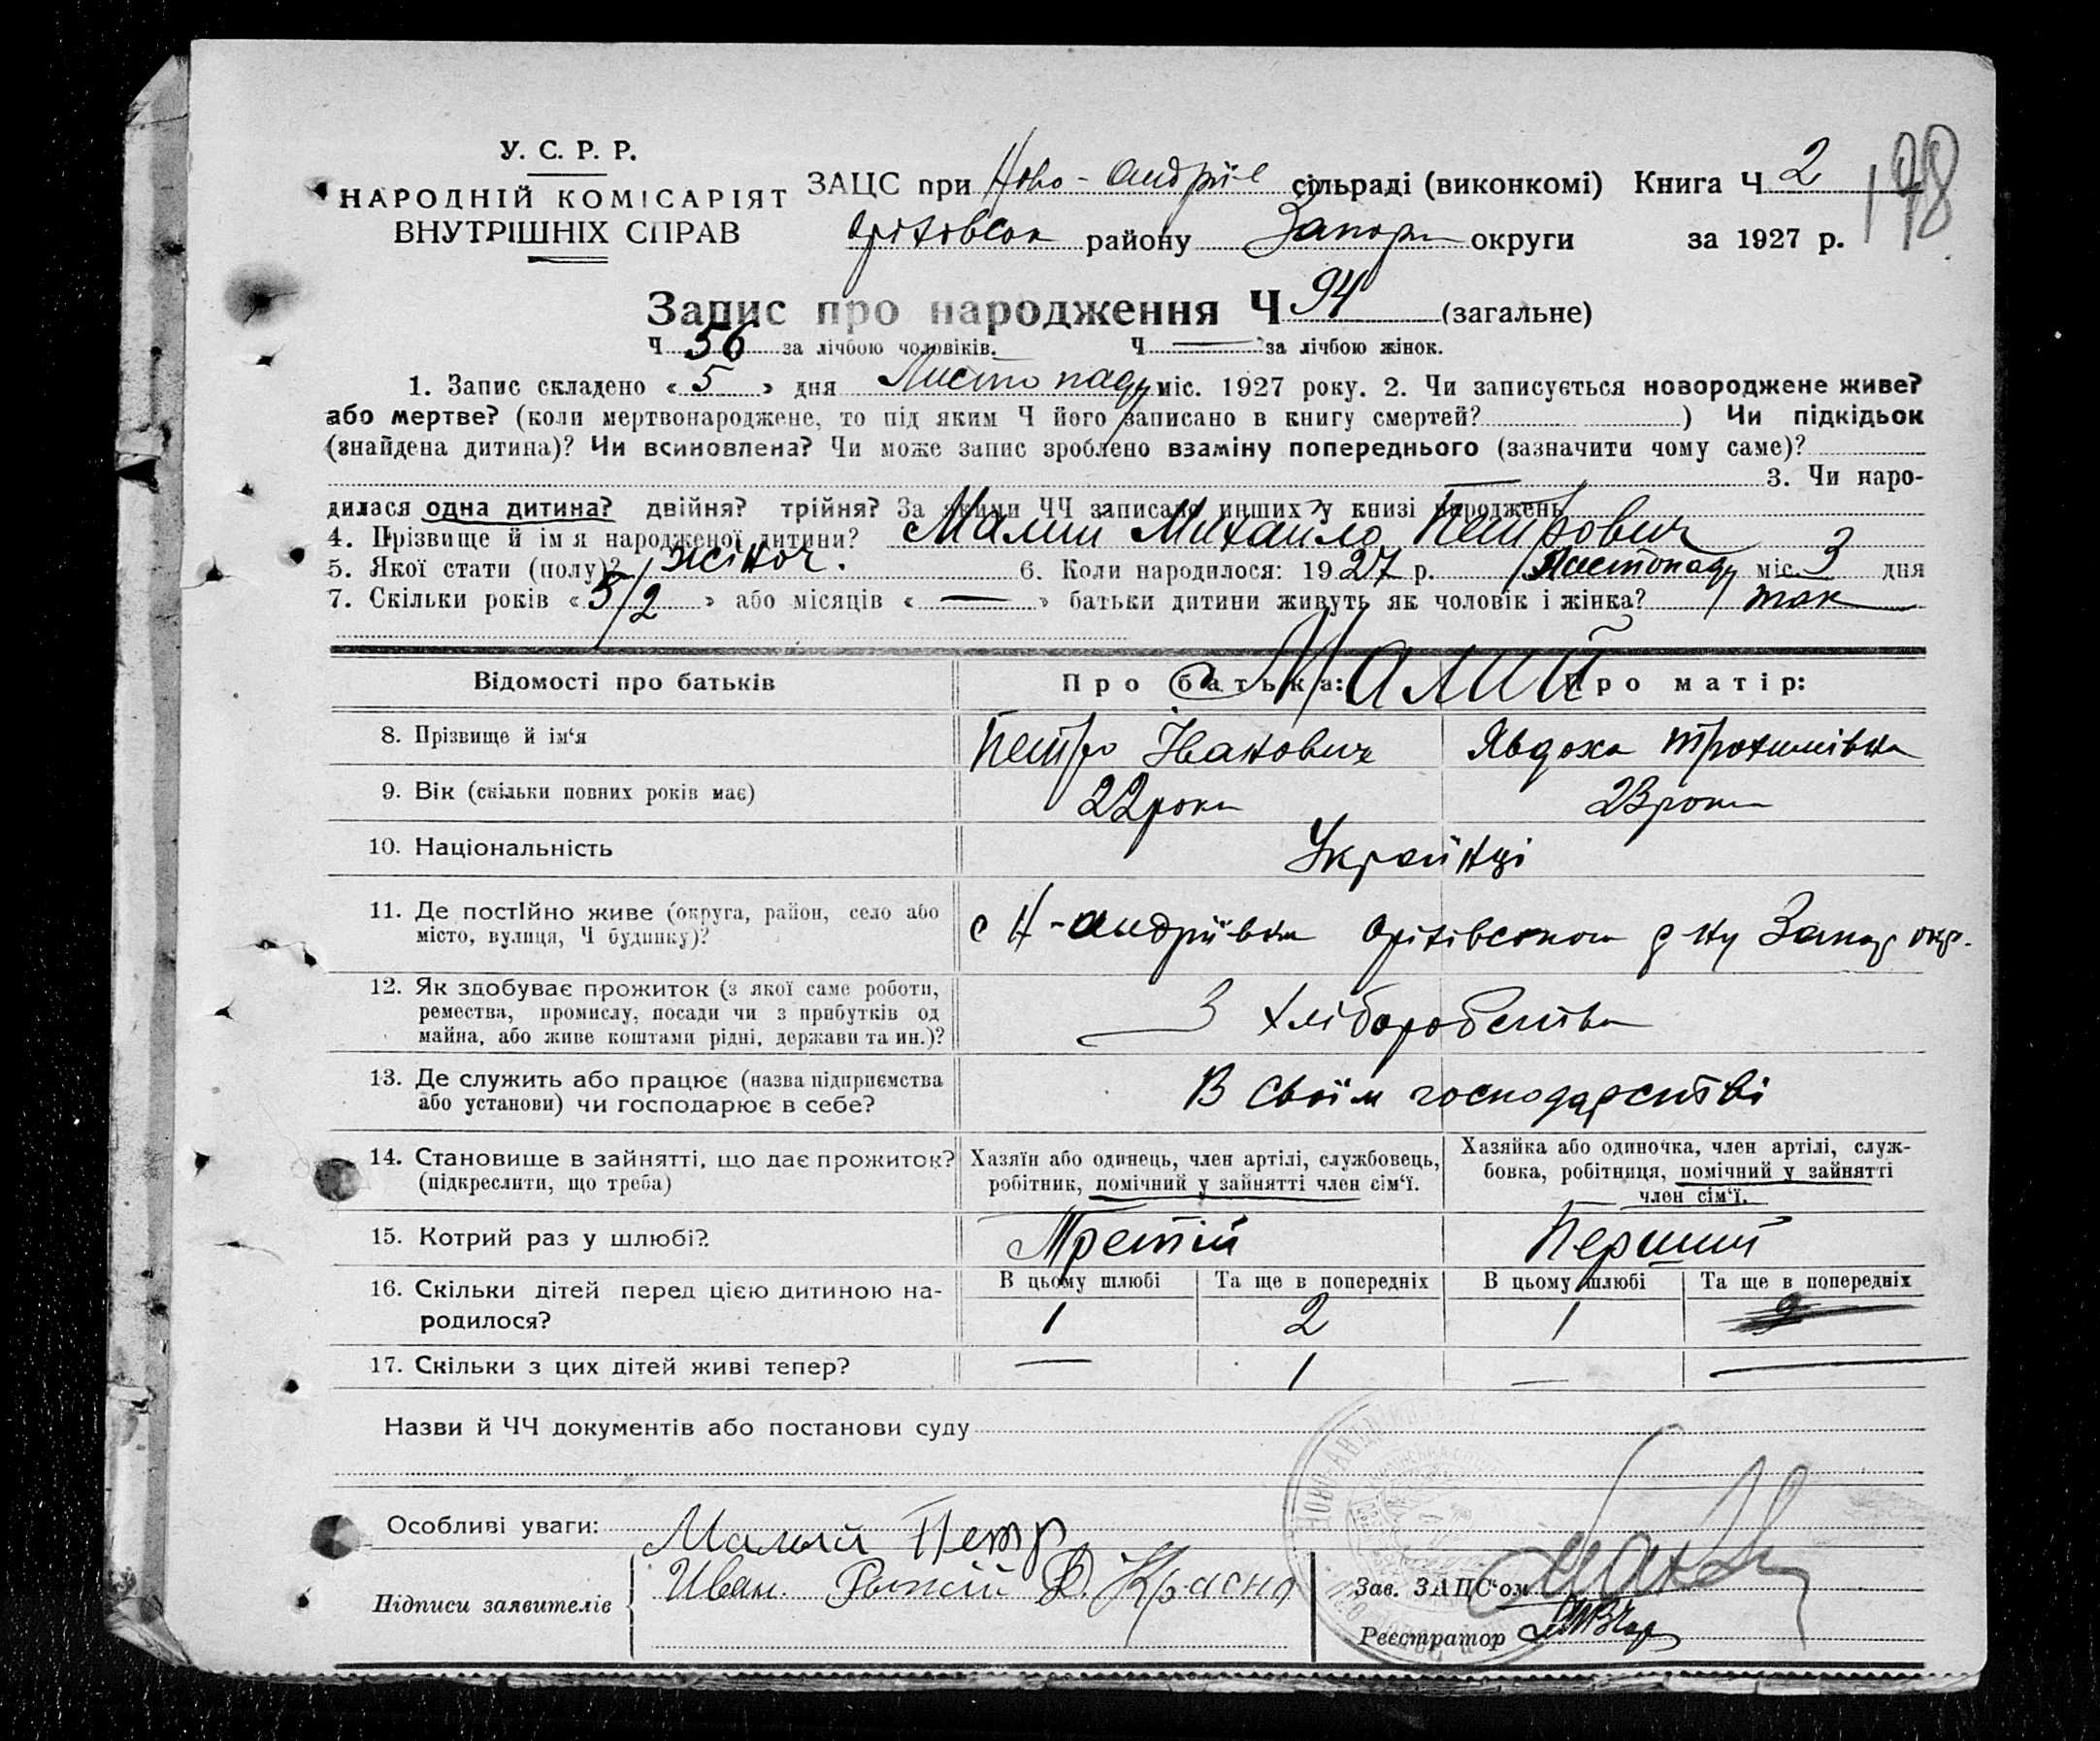 У. С. Р. Р.
НАРОДНІЙ КОМІСАРІЯТ
ВНУТРІШНІХ СПРАВ
ЗАЦС при Ново-Андрїї-е сільраді (виконкомі) Книга Ч 2
198
Оріхівськ району Запорж округи за 1927 р.
Запис про народження Ч 94 (загальне)
Ч 56 за лічбою чоловіків. Ч — за лічбою жінок.
1. Запис складено « 5 » дня Листопаду міс. 1927 року. 2. Чи записується новороджене живе?
або мертве? (коли мертвонароджене, то під яким Ч його записано в книгу смертей? ) Чи підкідьок
(знайдена дитина)? Чи всиновлена? Чи може запис зроблено взаміну попереднього (зазначити чому саме)?
3. Чи наро-
дилася одна дитина? двійня? трійня? За якими ЧЧ записано инших у книзі народжень
4. Прізвище й ім'я народженої дитини? Малий Михайло Петрович
5. Якої статі (полу)? жіноч. 6. Коли народилося: 1927 р. Листопаду міс. 3 дня
7. Скільки років « 5/2 » або місяців « — » батьки дитини живуть як чоловік і жінка? так
Відомості про батьків Про батька: Про матір:
Малий
8. Прізвище й ім'я Петро Іванович Явдоха Трохимівна
9. Вік (скільки повних років має) 22 роки 23 роки
10. Національність Українці
11. Де постійно живе (округа, район, село або
місто, вулиця, Ч будинку)?
с Н-Андріївка Оріхівського р-ну Запор окр.
12. Як здобуває прожиток (з якої саме роботи,
ремества, промислу, посади чи з прибутків од
майна, або живе коштами рідні, держави та ин.)?
З хліборобства
13. Де служить або працює (назва підприємства
або установи) чи господарює в себе?
В своїм господарстві
14. Становище в зайнятті, що дає прожиток?
(підкреслити, що треба)
Хазяїн або одинець, член артілі, службовець,
робітник, помічний у зайнятті член сім'ї.
Хазяйка або одиночка, член артілі, служ-
бовка, робітниця, помічний у зайнятті
член сім'ї.
15. Котрий раз у шлюбі? Третій Перший
16. Скільки дітей перед цією дитиною на-
родилося?
В цьому шлюбі Та ще в попередніх В цьому шлюбі Та ще в попередніх
1 2 1
17. Скільки з цих дітей живі тепер? — 1 — —
Назви й ЧЧ документів або постанови суду
Особливі уваги:
Малий Петр
Підписи заявителів
Иван.
Зав. ЗАЦС'ом
Реєстратор